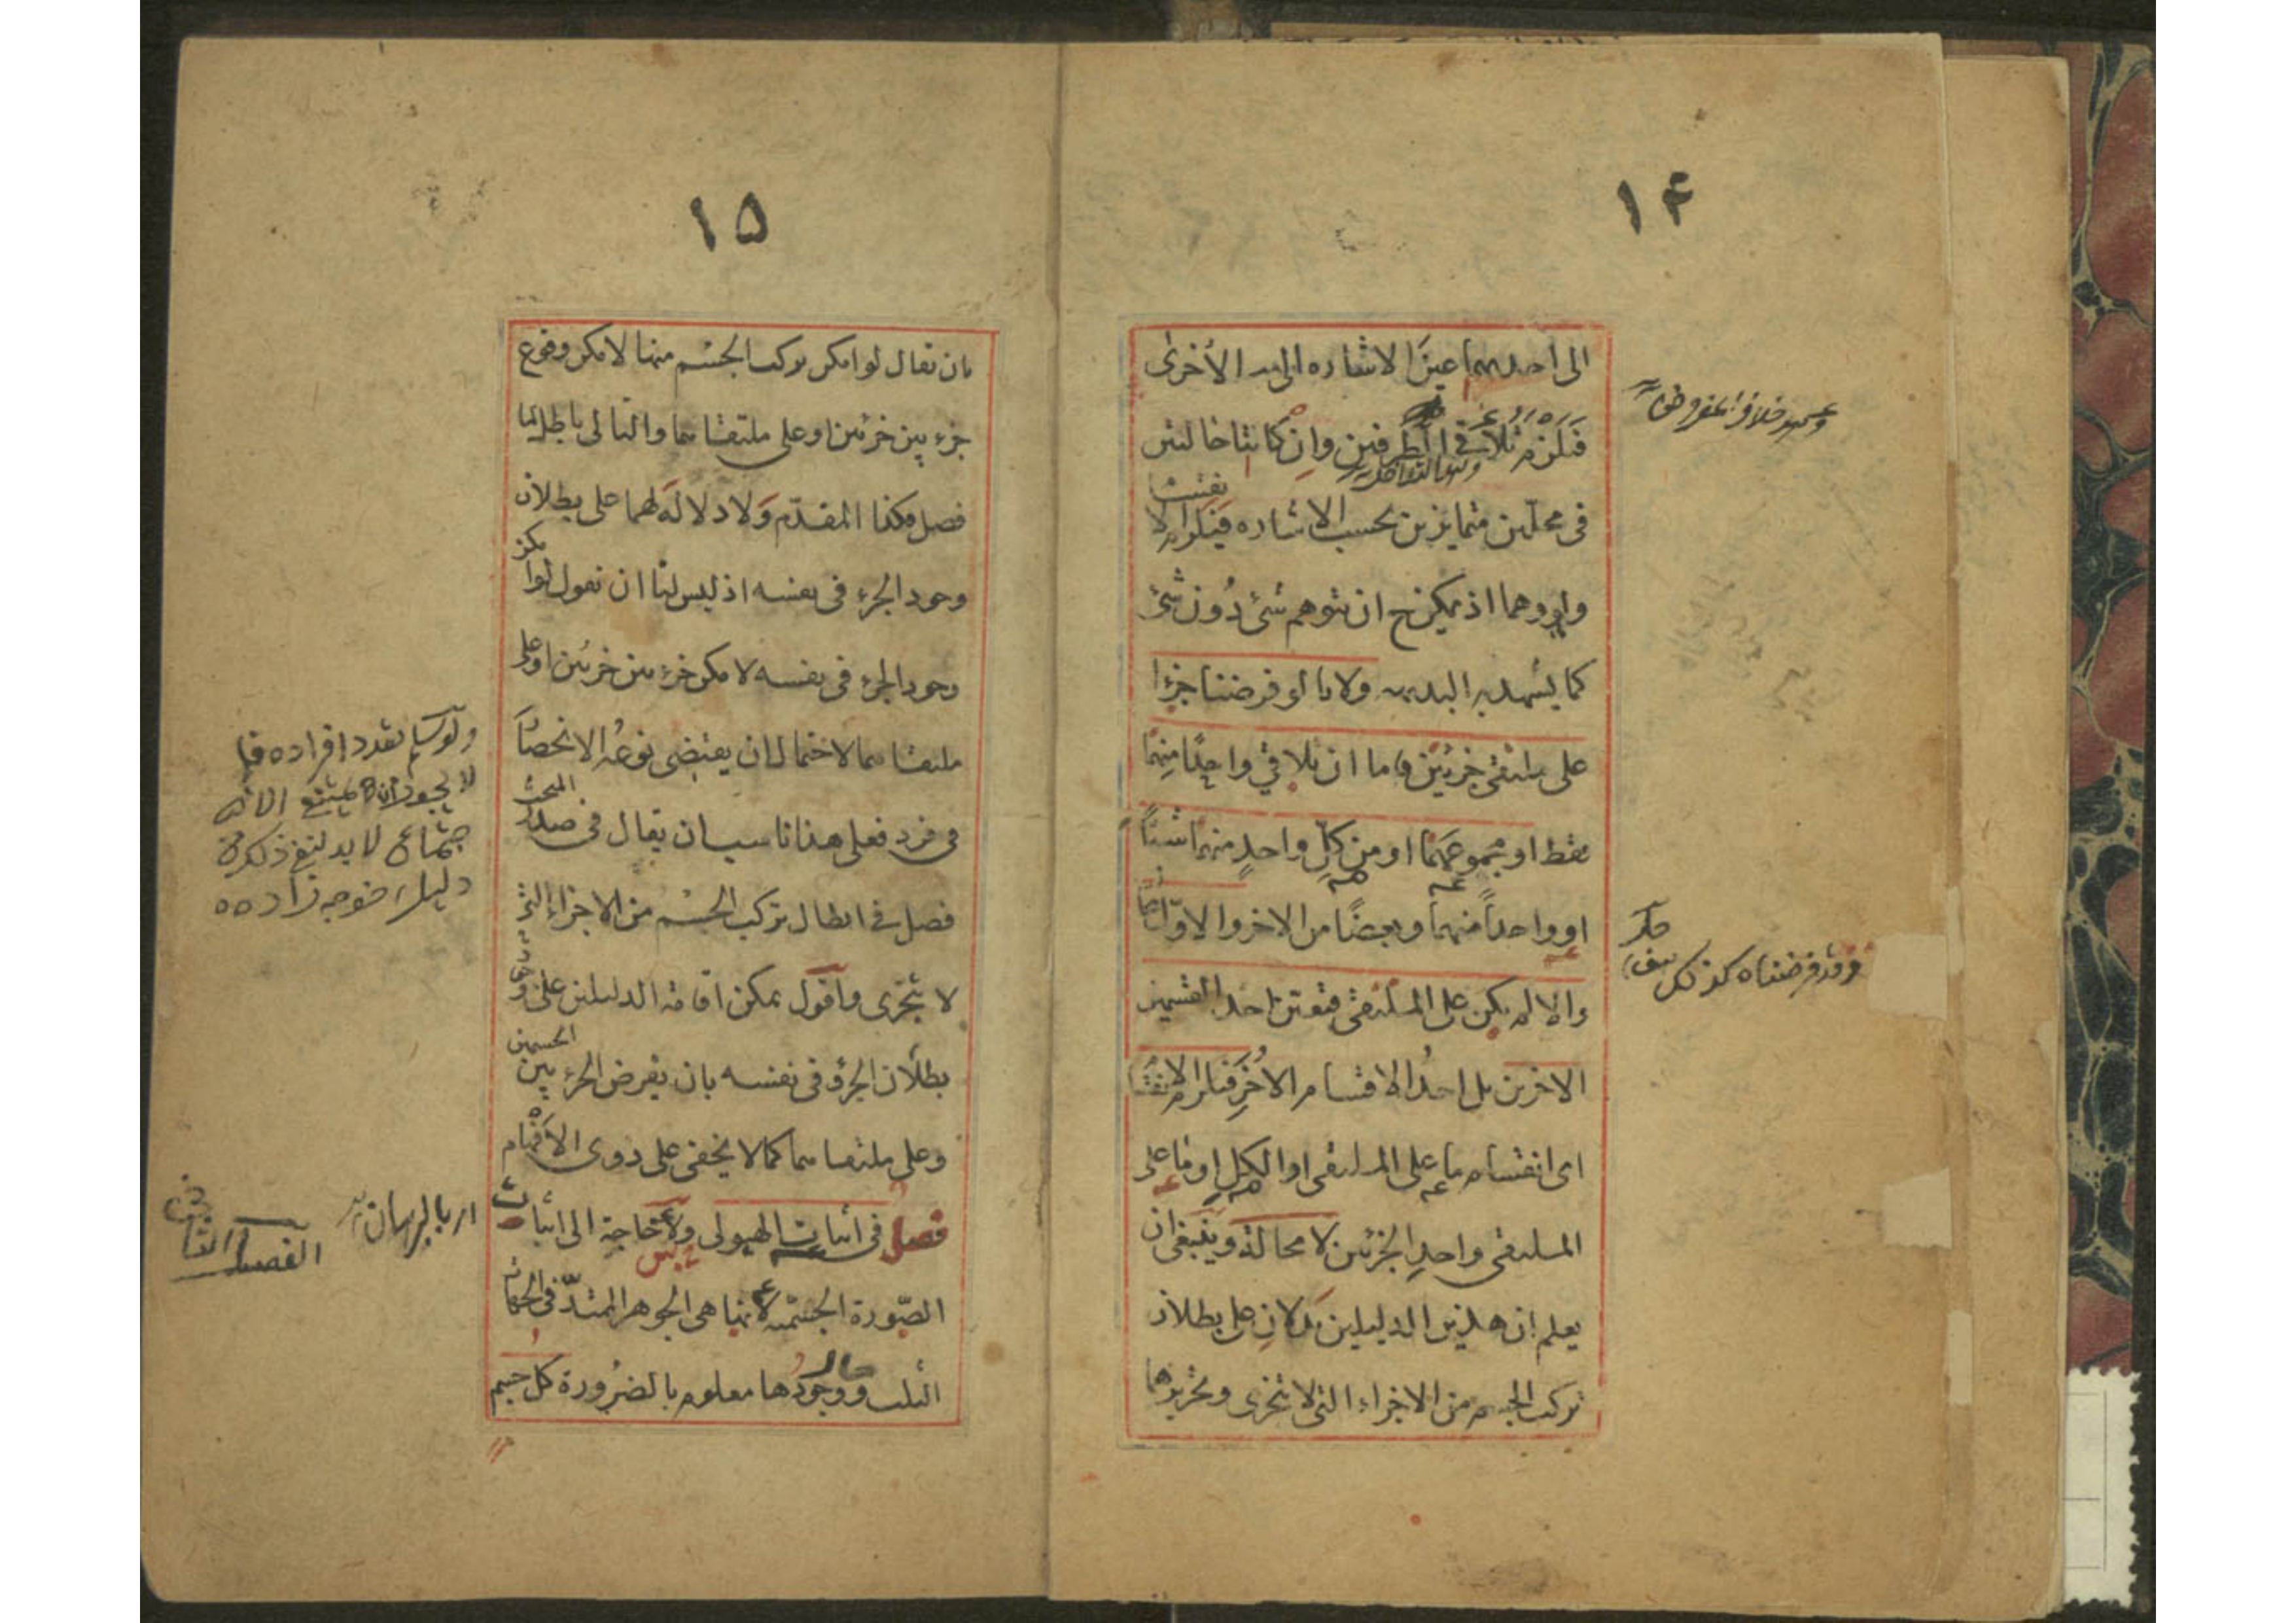 ۱۴
الى احديهما عين الاشاره الى الاخرى
فيلزم تلاقى الطرفين وان كانتا حالتين
فى محلين متمايزين بحسب الاشاره فيلزم الانقسام
ولو وهما اذ يمكن ح ان يتوهم شئ دون شئ
كما يشهد به البديهه ولانا لو فرضنا جزءا
على ملتقى جزئين فاما ان يلاقى واحدا منهما
فقط او مجموعهما او من كل واحد منهما شيئا
او واحدا منهما وبعضا من الاخر والاول
والا لم يكن على الملتقى فتعين احد القسمين
الاخرين بل احد الاقسام الاخر فيلزم الانقسام
اى انقسام ما على الملتقى او الكل او ما على
الملتقى واحد الجزئين لا محالة وينبغى ان
يعلم ان هذين الدليلين يدلان على بطلان
تركب الجسم من الاجزاء التى لا تتجزى وتحريرهما
وهو خلاف المفروض
وقد فرضناه كذلك هف
۱۵
بان يقال لو امكن تركب الجسم منها لامكن وقوع
جزء بين جزئين او على ملتقاهما والتالى باطل لما
فصل فكذا المقدم ولا دلالة لهما على بطلان
وجود الجزء فى نفسه اذ ليس لنا ان نقول لو امكن
وجود الجزء فى نفسه لامكن جزء بين جزئين او على
ملتقاهما لاحتمال ان يقتضى نوعه الانحصار
فى فرد فعلى هذا ناسب ان يقال فى صدر المبحث
فصل فى ابطال تركب الجسم من الاجزاء التى
لا تتجزى واقول يمكن اقامة الدليلين على
بطلان الجزء فى نفسه بان يفرض الجزء بين الجسمين
وعلى ملتقاهما كما لا يخفى على ذوى الافهام
فصل فى اثبات الهيولى ولا حاجة الى اثبات
الصورة الجسمية لانها هى الجوهر الممتد فى الجهات
الثلث ووجودها معلوم بالضرورة كل جسم
ولو سلم تعدد افراده فلم
لا يجوز ان يمتنع
اجتماع لا بد لنفى ذلك من
دليل خوجه زاده
ار بالبرهان
الفصل الثانى